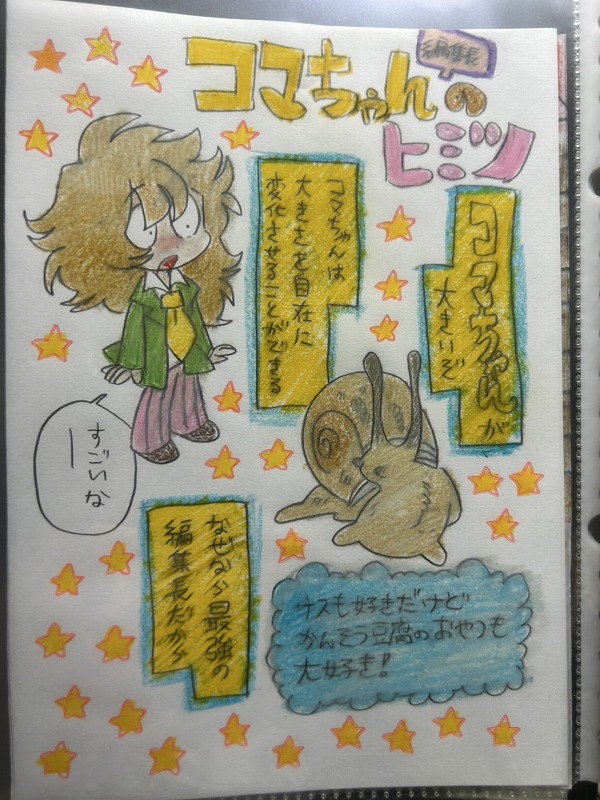 編集長
コマちゃんの
ヒミツ
コマちゃんが
大きいぞ
コマちゃんは
大きさを自在に
変化させることができる
すごいなー
なぜなら最強の
編集長だから
ナスも好きだけど
かんそう豆腐のおやつも
大好き!